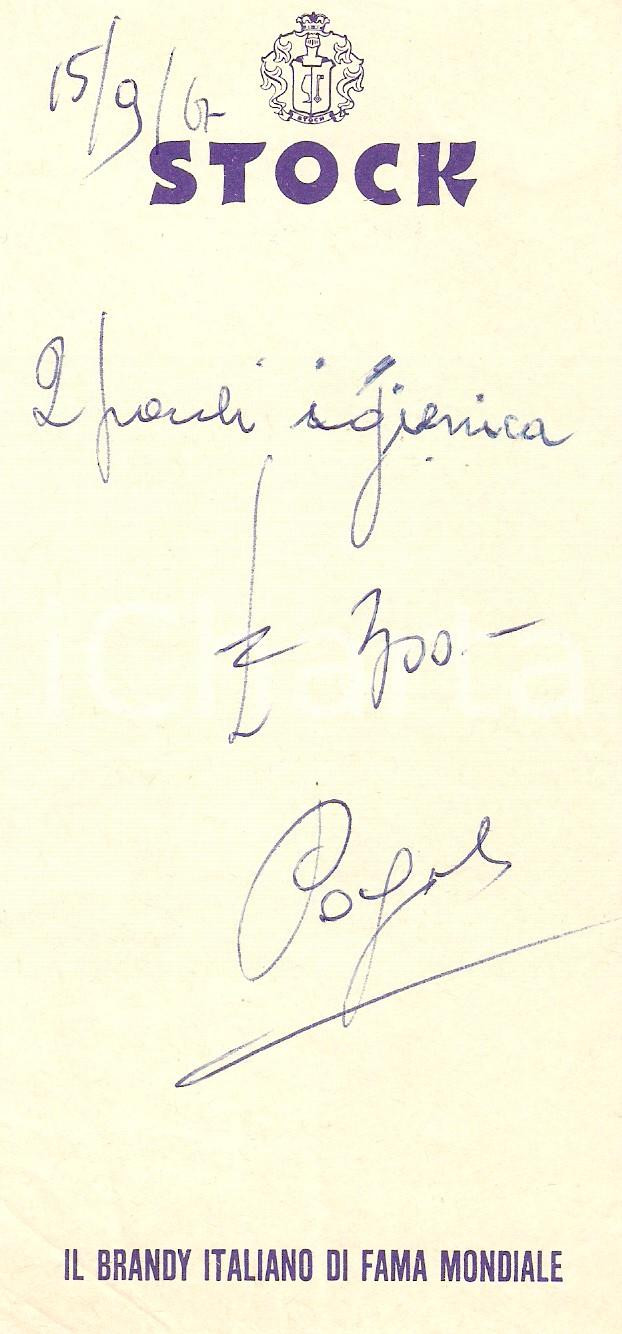 15/9/67
STOCK
STOCK
2 pacchi igienica
£ 300.-
Pagato
IL BRANDY ITALIANO DI FAMA MONDIALE
iCharta